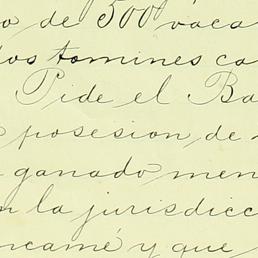 o de 500 vaca
los tomines ca
Pide el Ba
posesion de
ganado men
n la jurisdicc
ncamé y que